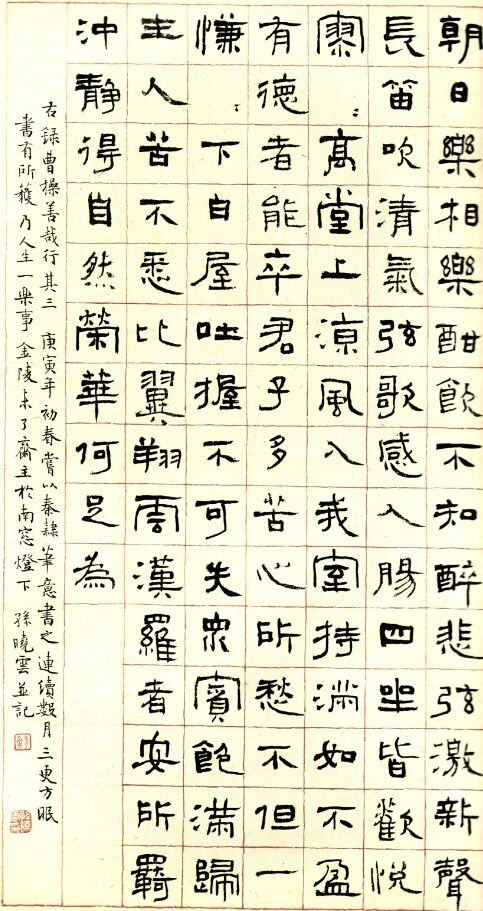 朝日樂相樂酣飲不知醉悲弦激新聲
長笛吹清氣弦歌感人腸四坐皆歡悅
寥〻高堂上涼風入我室持滿如不盈
有德者能卒君子多苦心所愁不但一
慊〻下白屋吐握不可失眾賓飽滿歸
主人苦不悉比翼翔雲漢羅者安所羈
沖靜得自然榮華何足為
右錄曹操善哉行其三 庚寅年初春嘗以秦隸筆意書之連續數月三更方眠
書有所獲乃人生一樂事 金陵未了齋主於南窗燈下 孫曉雲並記